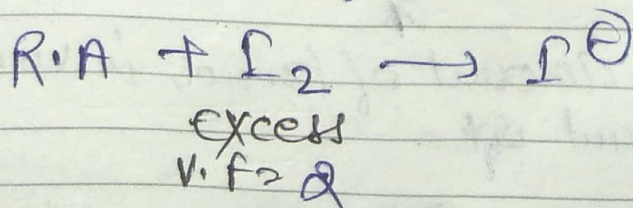 R.A + I2 ⟶ I⊖
excess
v.f = 2